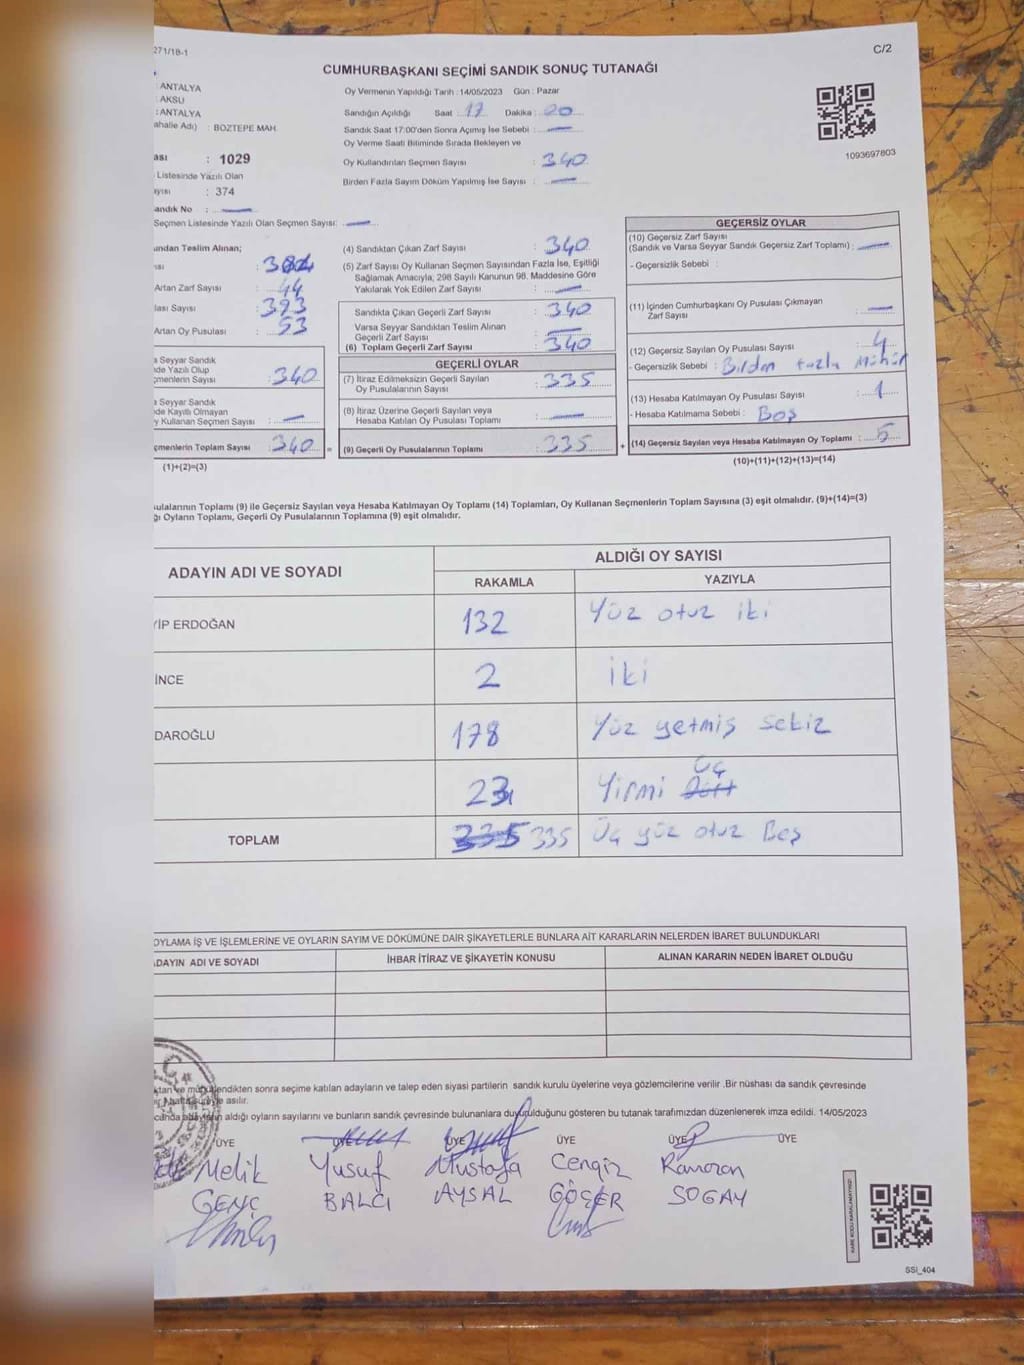 271/18-1
C/2
CUMHURBAŞKANI SEÇİMİ SANDIK SONUÇ TUTANAĞI
: ANTALYA
: AKSU
: ANTALYA
ahalle Adı) : BOZTEPE MAH.
ası : 1029
Listesinde Yazılı Olan
ayısı : 374
andık No :
Seçmen Listesinde Yazılı Olan Seçmen Sayısı:
Oy Vermenin Yapıldığı Tarih : 14/05/2023 Gün : Pazar
Sandığın Açıldığı Saat : 17 Dakika : 20
Sandık Saat 17:00'den Sonra Açımış İse Sebebi :
Oy Verme Saati Bitiminde Sırada Bekleyen ve
Oy Kullandırılan Seçmen Sayısı : 340
Birden Fazla Sayım Döküm Yapılmış İse Sayısı :
1093697803
undan Teslim Alınan;
ısı :
Artan Zarf Sayısı : 44
lası Sayısı : 393
Artan Oy Pusulası : 53
a Seyyar Sandık
nde Yazılı Olup
çmenlerin Sayısı : 340
a Seyyar Sandık
nde Kayıtlı Olmayan
y Kullanan Seçmen Sayısı :
çmenlerin Toplam Sayısı : 340 =
(1)+(2)=(3)
(4) Sandıktan Çıkan Zarf Sayısı : 340
(5) Zarf Sayısı Oy Kullanan Seçmen Sayısından Fazla İse, Eşitliği
Sağlamak Amacıyla; 298 Sayılı Kanunun 98. Maddesine Göre
Yakılarak Yok Edilen Zarf Sayısı :
Sandıkta Çıkan Geçerli Zarf Sayısı : 340
Varsa Seyyar Sandıktan Teslim Alınan
Geçerli Zarf Sayısı :
(6) Toplam Geçerli Zarf Sayısı : 340
GEÇERLİ OYLAR
(7) İtiraz Edilmeksizin Geçerli Sayılan
Oy Pusulalarının Sayısı : 335
(8) İtiraz Üzerine Geçerli Sayılan veya
Hesaba Katılan Oy Pusulası Toplamı :
(9) Geçerli Oy Pusulalarının Toplamı : 335 +
GEÇERSİZ OYLAR
(10) Geçersiz Zarf Sayısı
(Sandık ve Varsa Seyyar Sandık Geçersiz Zarf Toplamı) :
- Geçersizlik Sebebi :
(11) İçinden Cumhurbaşkanı Oy Pusulası Çıkmayan
Zarf Sayısı :
(12) Geçersiz Sayılan Oy Pusulası Sayısı : 4
- Geçersizlik Sebebi : Birden fazla Mühür
(13) Hesaba Katılmayan Oy Pusulası Sayısı : 1
- Hesaba Katılmama Sebebi : Boş
(14) Geçersiz Sayılan veya Hesaba Katılmayan Oy Toplamı : 5
(10)+(11)+(12)+(13)=(14)
usulalarının Toplamı (9) ile Geçersiz Sayılan veya Hesaba Katılmayan Oy Toplamı (14) Toplamları, Oy Kullanan Seçmenlerin Toplam Sayısına (3) eşit olmalıdır. (9)+(14)=(3)
ğı Oyların Toplamı, Geçerli Oy Pusulalarının Toplamına (9) eşit olmalıdır.
ADAYIN ADI VE SOYADI
ALDIĞI OY SAYISI
RAKAMLA YAZIYLA
YİP ERDOĞAN 132 Yüz otuz iki
İNCE 2 iki
DAROĞLU 178 Yüz yetmiş sekiz
23 Yirmi Üç
TOPLAM 335 335 Üç yüz otuz Beş
OYLAMA İŞ VE İŞLEMLERİNE VE OYLARIN SAYIM VE DÖKÜMÜNE DAİR ŞİKAYETLERLE BUNLARA AİT KARARLARIN NELERDEN İBARET BULUNDUKLARI
ADAYIN ADI VE SOYADI İHBAR İTİRAZ VE ŞİKAYETİN KONUSU ALINAN KARARIN NEDEN İBARET OLDUĞU
ktan ve mühürlendikten sonra seçime katılan adayların ve talep eden siyasi partilerin sandık kurulu üyelerine veya gözlemcilerine verilir .Bir nüshası da sandık çevresinde
asılır.
adayların aldığı oyların sayılarını ve bunların sandık çevresinde bulunanlara duyurulduğunu gösteren bu tutanak tarafımızdan düzenlenerek imza edildi. 14/05/2023
ÜYE ÜYE ÜYE ÜYE ÜYE ÜYE
Melik Yusuf Mustafa Cengiz Ramazan
GENÇ BALCI AYSAL GÖÇER SOGAY
KARE KODU KARALAMAYINIZ!
SSİ_404